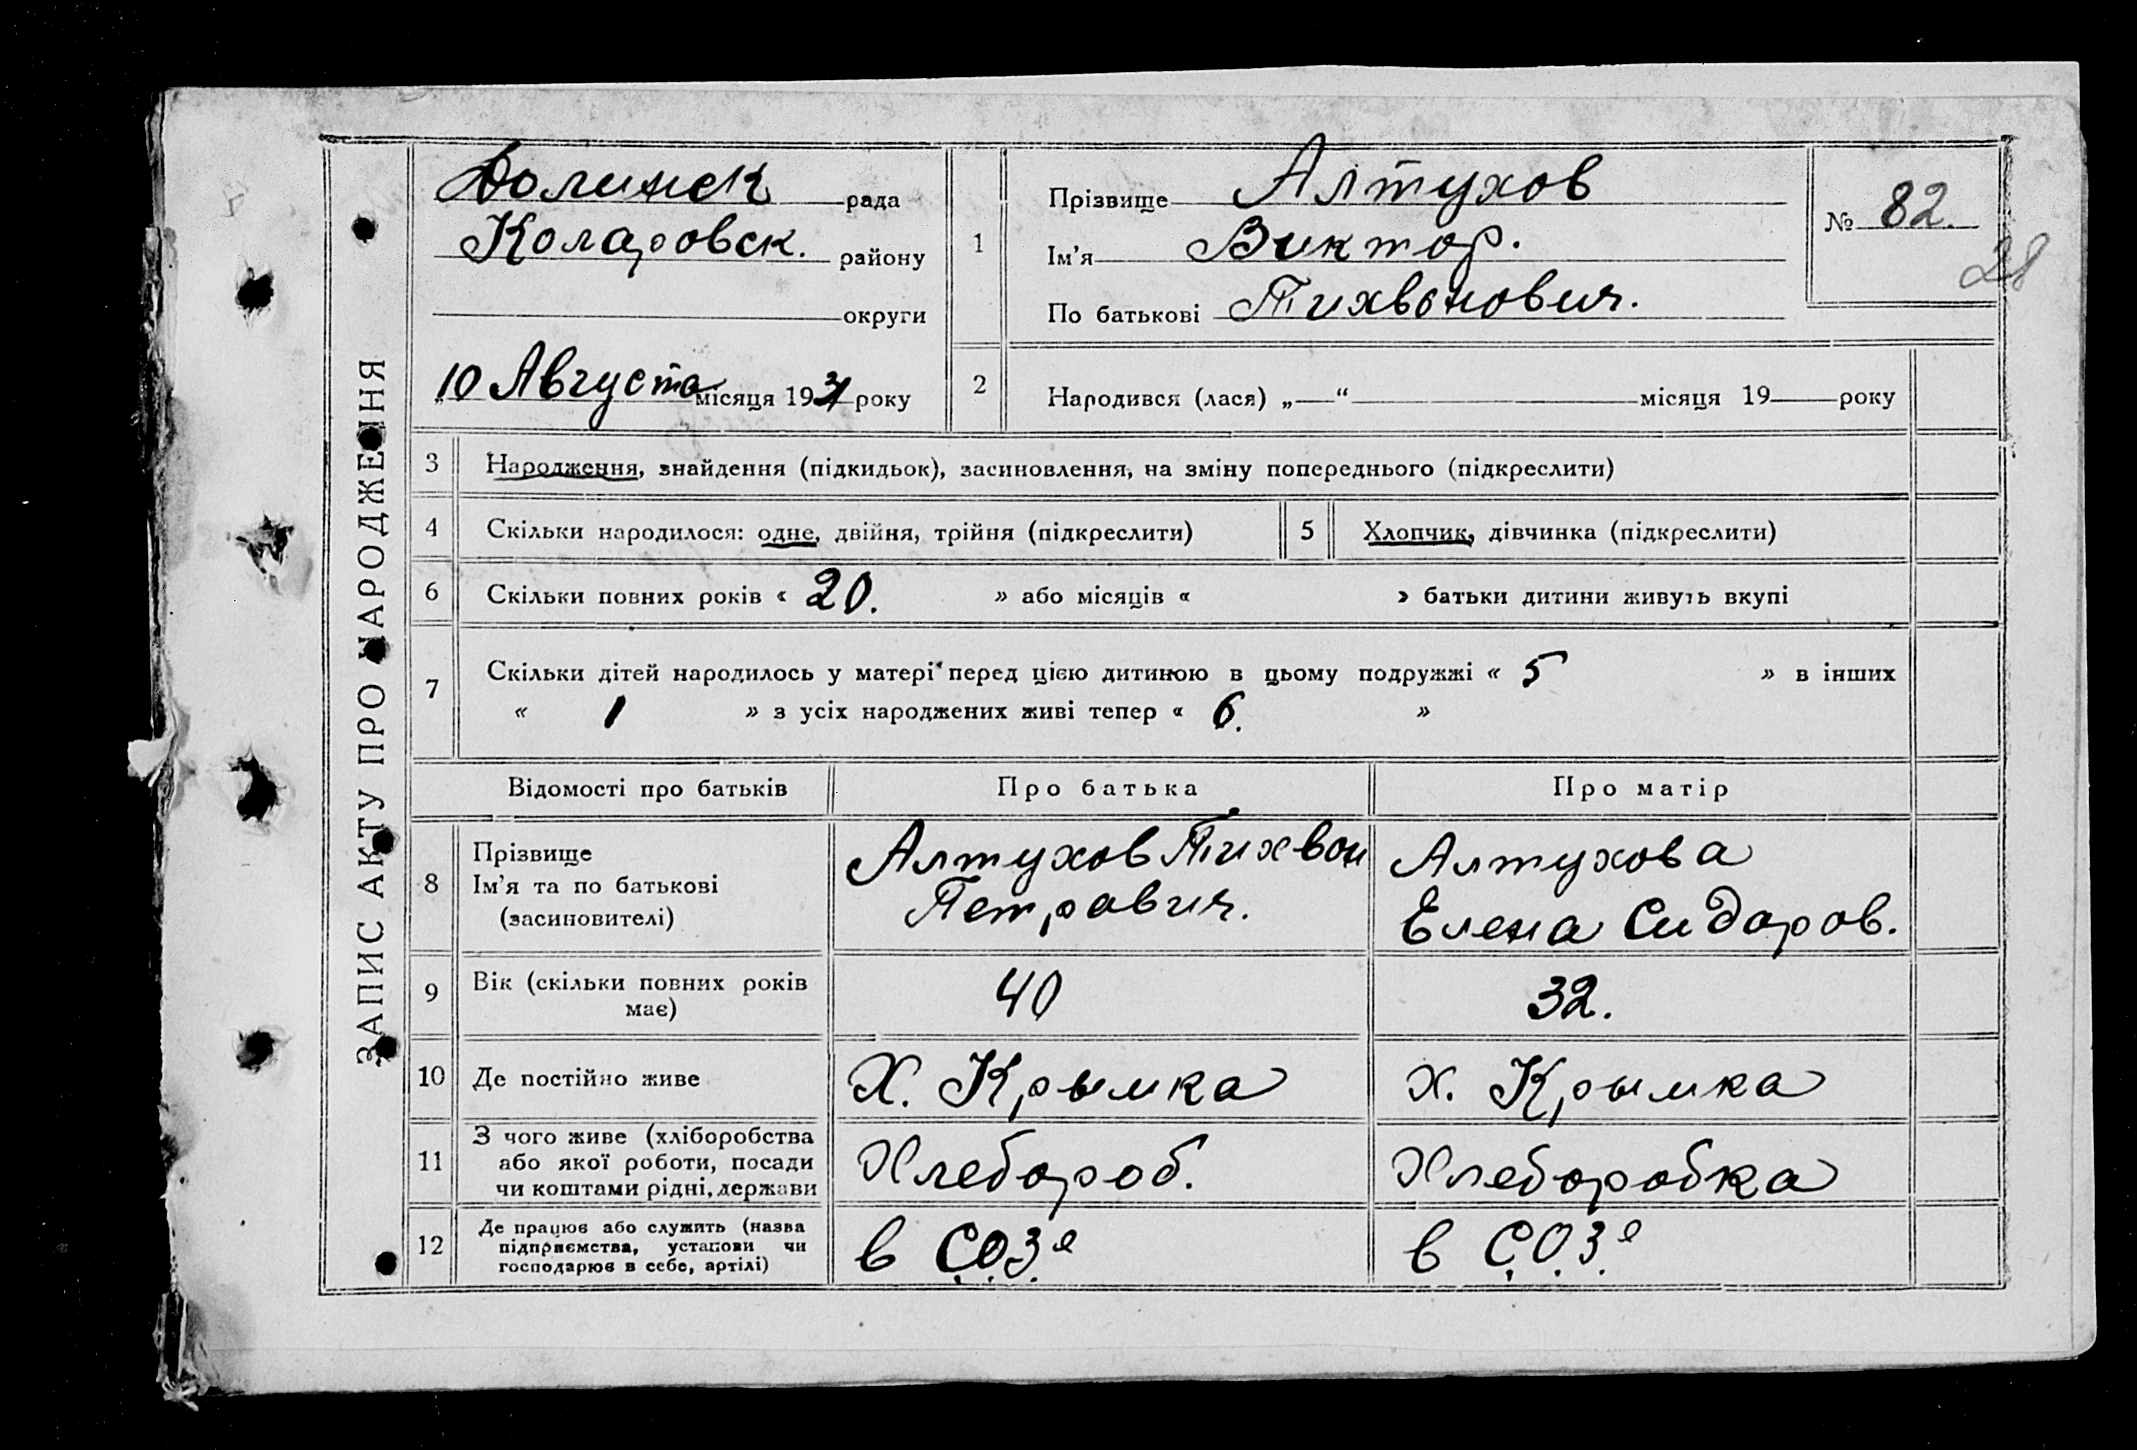 ЗАПИС АКТУ ПРО НАРОДЖЕННЯ
Долинск рада
Коларовск. району
округи
„10 Августа місяця 1931 року
1
Прізвище Алтухов
Ім’я Виктор.
По батькові Тихвонович.
№ 82.
28
2 Народився (лася) „—“ місяця 19 року
3 Народження, знайдення (підкидьок), засиновлення, на зміну попереднього (підкреслити)
4 Скільки народилося: одне, двійня, трійня (підкреслити) 5 Хлопчик, дівчинка (підкреслити)
6 Скільки повних років « 20. » або місяців « » батьки дитини живуть вкупі
7 Скільки дітей народилось у матері перед цією дитиною в цьому подружжі « 5 » в інших
« 1 » з усіх народжених живі тепер « 6. »
Відомості про батьків Про батька Про матір
8 Прізвище
Ім’я та по батькові
(засиновителі)
Алтухов Тихвон
Петрович.
Алтухова
Елена Сидоров.
9 Вік (скільки повних років
має)
40
32.
10 Де постійно живе Х. Крымка х. Крымка
11 З чого живе (хліборобства
або якої роботи, посади
чи коштами рідні, держави
Хлебороб.
Хлеборобка
12 Де працює або служить (назва
підприємства, установи чи
господарює в себе, артілі)
в С.О.З.е
в С.О.З.е